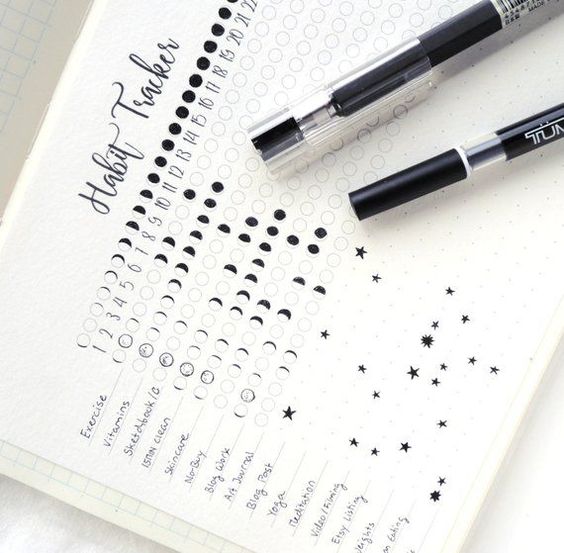 Habit Tracker
1 2 3 4 5 6 7 8 9 10 11 12 13 14 15 16 17 18 19 20 21 22
Exercise
Vitamins
15min clean
Skincare
No-Buy
Blog Work
Art Journal
Blog Post
Yoga
Meditation
Video/Filming
Etsy Listing
Weights
Eating